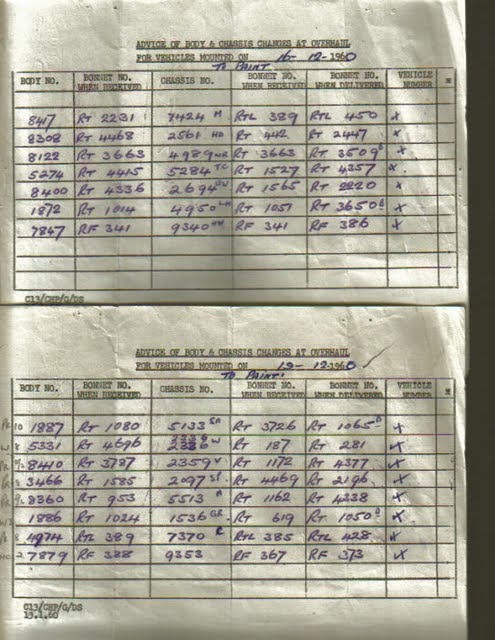 ADVICE OF BODY & CHASSIS CHANGES AT OVERHAUL
FOR VEHICLES MOUNTED ON 16-12-1960
TO PAINT
BODY NO. BONNET NO. WHEN RECEIVED CHASSIS NO. BONNET NO. WHEN RECEIVED BONNET NO. WHEN DELIVERED VEHICLE NUMBER
8417 RT 2231 7424 M RTL 389 RTL 450 X
8308 RT 4468 2561 HD RT 442 RT 2447 X
8122 RT 3663 4989 WR RT 3663 RT 3509 X
5274 RT 4415 5284 TC RT 1527 RT 4357 X
8400 RT 4336 2694 RT 1565 RT 2220 X
1872 RT 1014 4950 RT 1051 RT 3650 X
7847 RF 341 9340 RF 341 RF 386 X
C13/CHP/G/DS
ADVICE OF BODY & CHASSIS CHANGES AT OVERHAUL
FOR VEHICLES MOUNTED ON 19-12-1960
TO PAINT
BODY NO. BONNET NO. WHEN RECEIVED CHASSIS NO. BONNET NO. WHEN RECEIVED BONNET NO. WHEN DELIVERED VEHICLE NUMBER
10 1887 RT 1080 5133 RT 3726 RT 1065 X
8 5331 RT 4696 2386 W RT 187 RT 281 X
8410 RT 3787 2359 V RT 1172 RT 4377 X
8 3466 RT 1585 2097 RT 4469 RT 2196 X
8360 RT 953 5513 RT 1162 RT 4238 X
1886 RT 1024 1536 GR RT 619 RT 1050 X
8 4974 RTL 389 7370 R RTL 385 RTL 428 X
2 7879 RF 388 9353 RF 367 RF 373 X
C13/CHP/G/DS
13.1.60